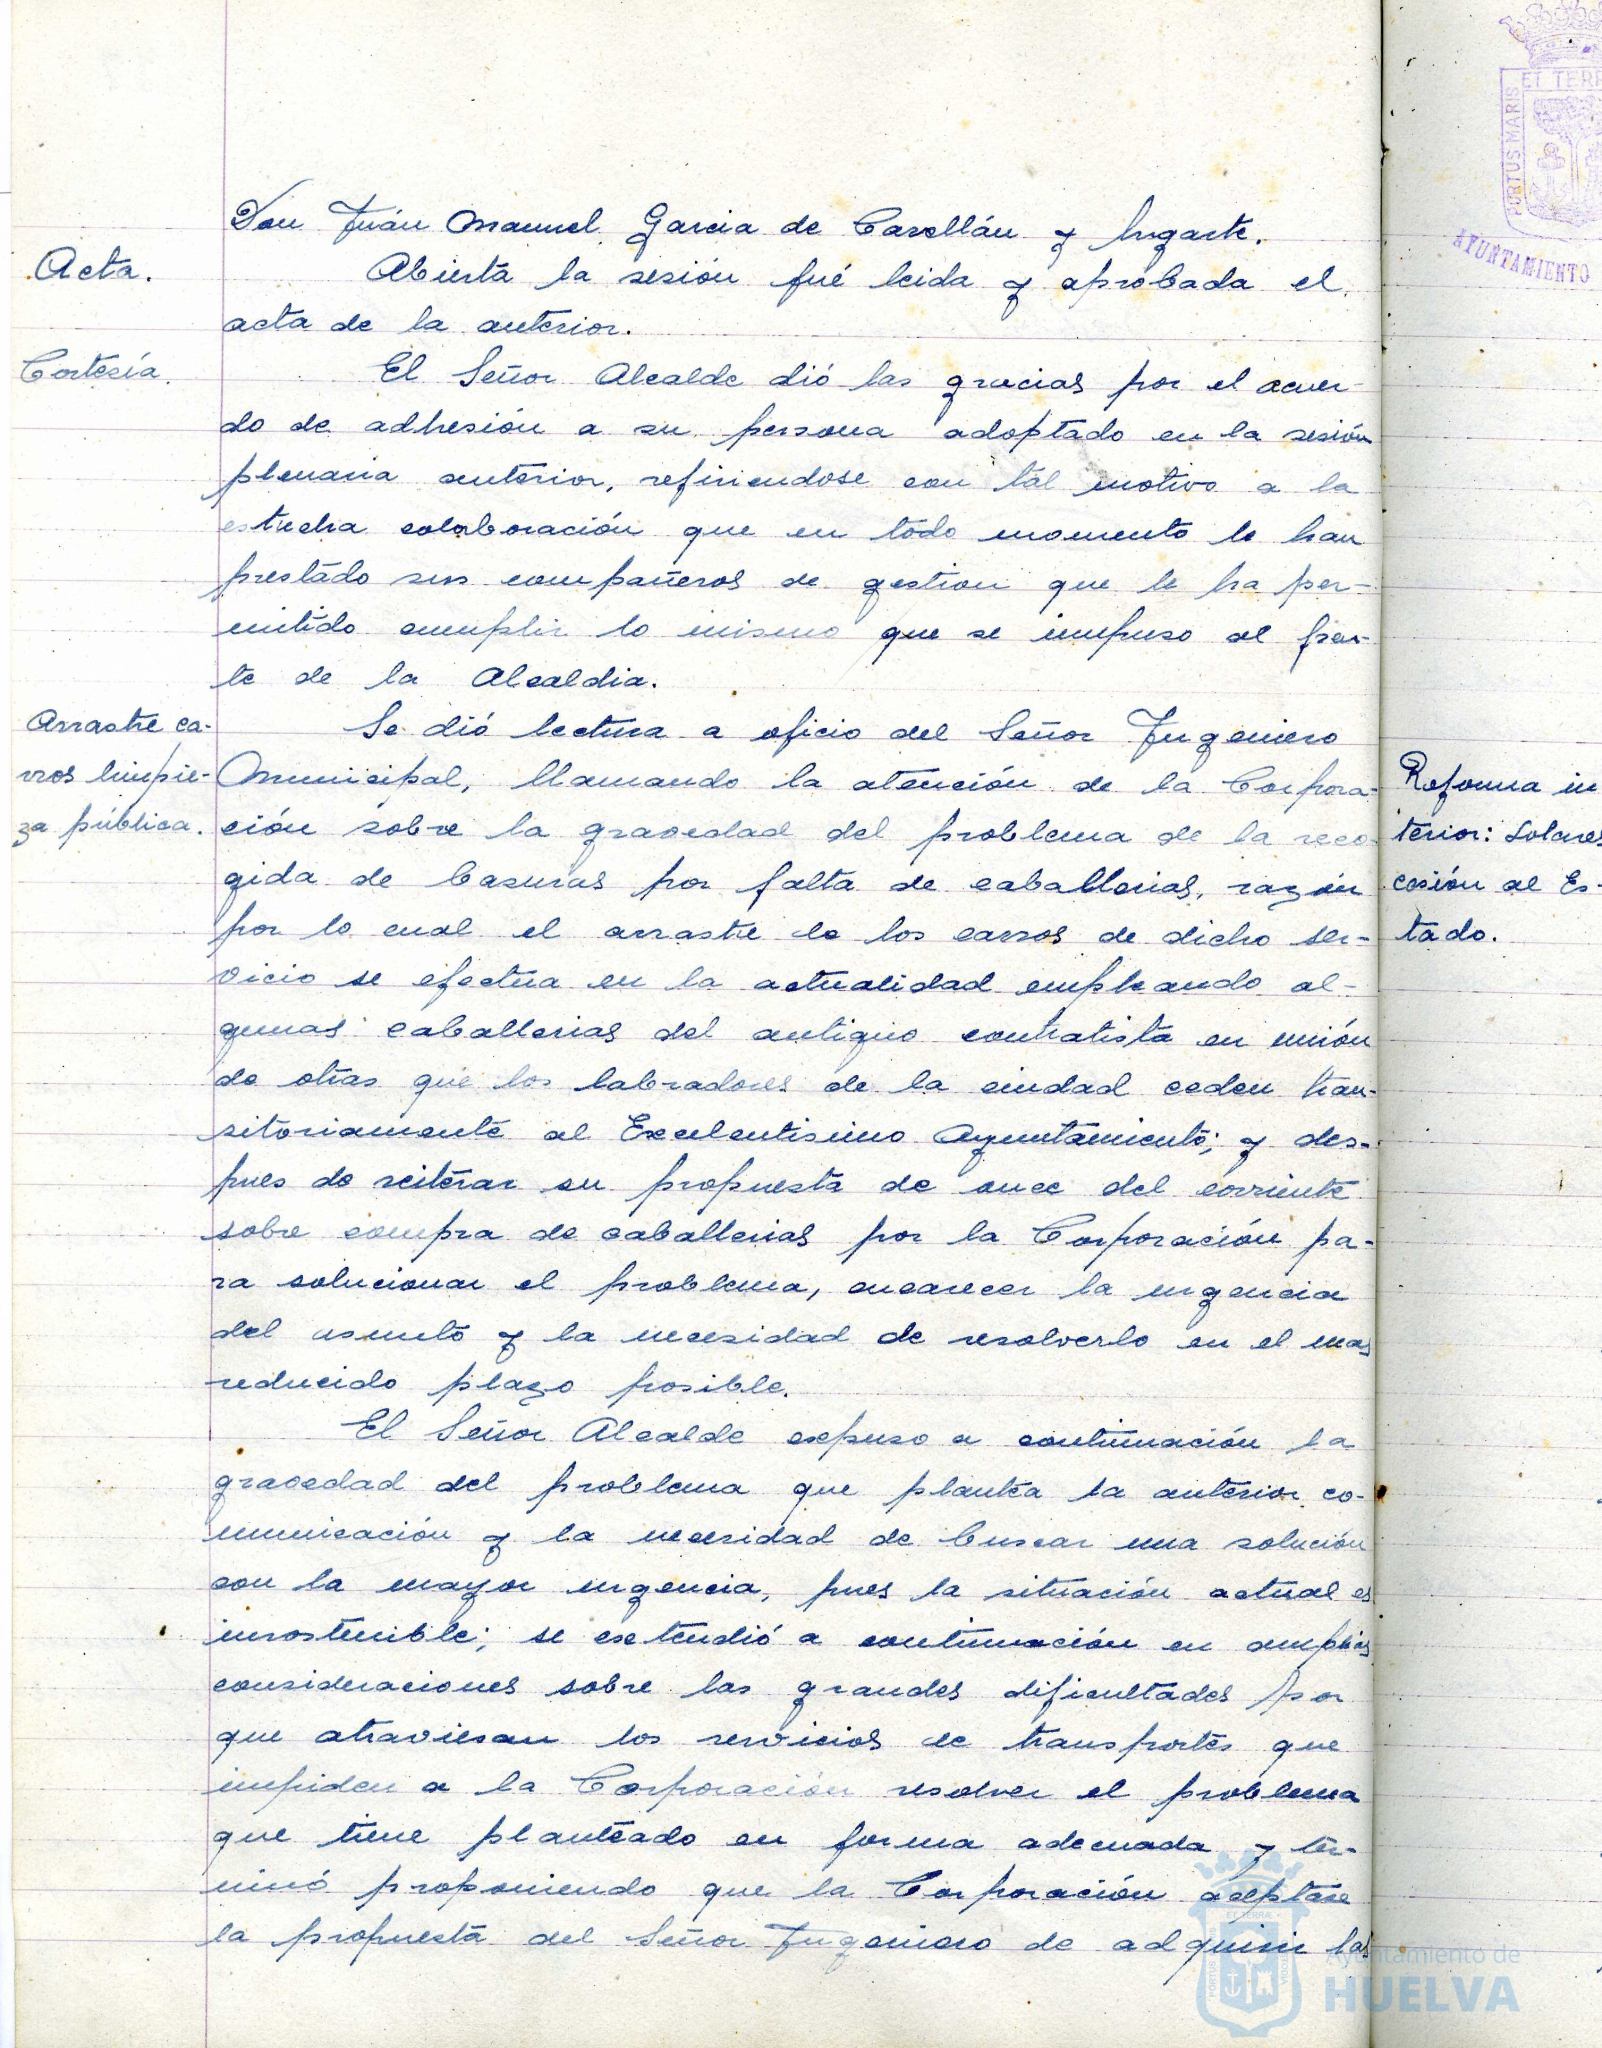 Don Juán Manuel Garcia de Casellán y Ingarte.
Acta.
Abierta la sesión fué leida y aprobada el
acta de la anterior.
Cortesía.
El Señor Alcalde dió las gracias por el acuer-
do de adhesión a su persona adoptado en la sesión
plenaria anterior, refiriendose con tál motivo a la
estrecha colaboración que en todo momento le han
prestado sus compañeros de gestion que le ha per-
mitido cumplir lo mismo que se impuso al fren-
te de la Alcaldia.
Arrastre ca-
rros limpie-
za pública.
Se dió lectura a oficio del Señor Ingeniero
Municipal, llamando la atención de la Corpora-
ción sobre la gravedad del problema de la reco-
gida de basuras por falta de caballerias, razón
por lo cual el arrastre de los carros de dicho ser-
vicio se efectua en la actualidad empleando al-
gunas caballerias del antiguo contratista en unión
de otras que los labradores de la ciudad ceden tran-
sitoriamente al Excelentisimo Ayuntamiento; y des-
pues de reiterar su propuesta de once del corriente
sobre compra de caballerias por la Corporación pa-
ra solucionar el problema, encarecer la urgencia
del asunto y la necesidad de resolverlo en el mas
reducido plazo posible.
El Señor Alcalde expuso a continuación la
gravedad del problema que plantea la anterior co-
municación y la necesidad de buscar una solución
con la mayor urgencia, pues la situación actual es
insostenible; se extendió a continuación en amplias
consideraciones sobre las grandes dificultades por
que atraviesan los servicios de transportes que
impiden a la Corporación resolver el problema
que tiene planteado en forma adecuada y ter-
minó proponiendo que la Corporación aceptase
la propuesta del Señor Ingeniero de adquirir las
PORTUS MARIS
ET TERR
AYUNTAMIENTO
Reforma in
terior: Solares
cesión al Es-
tado.
Ayuntamiento de
HUELVA